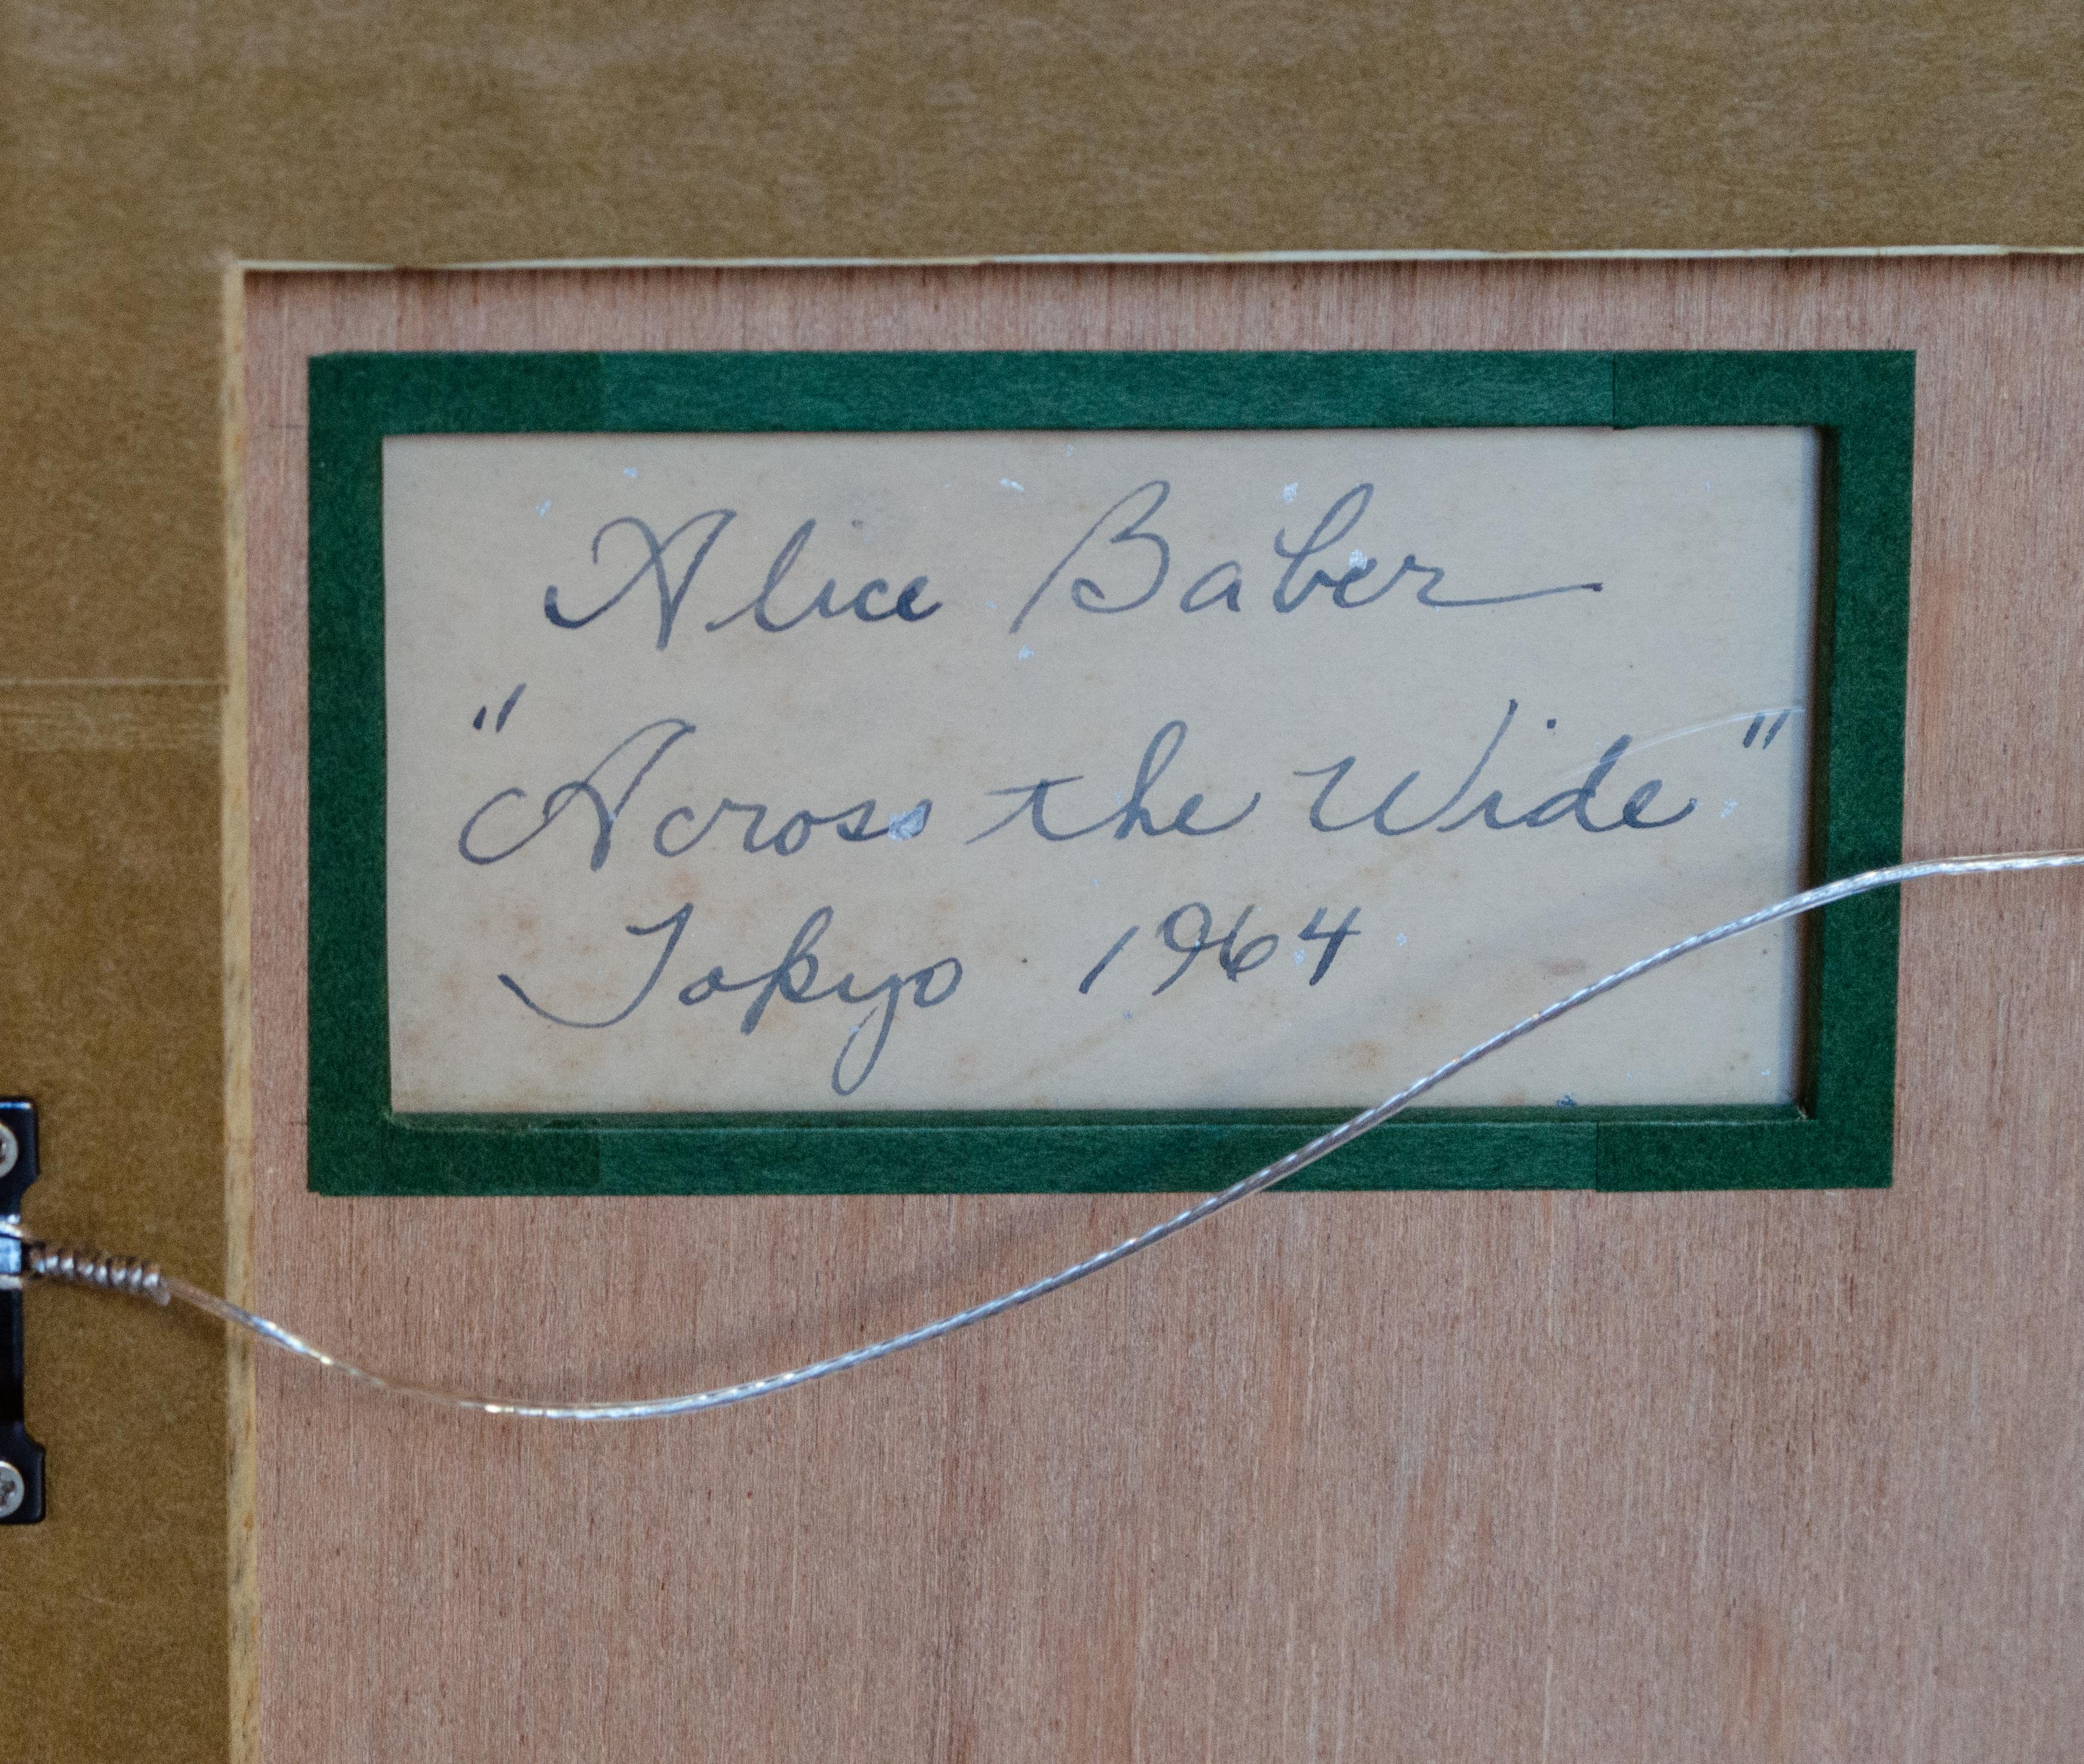 Alice Baber
"Across the Wide"
Tokyo 1964